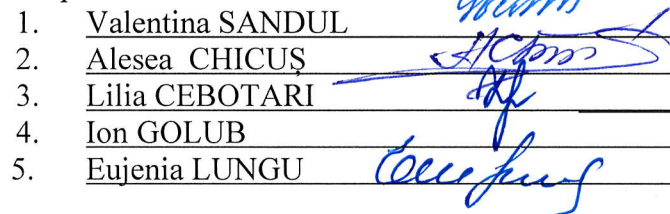 1. Valentina SANDUL
2. Alesea CHICUȘ
3. Lilia CEBOTARI
4. Ion GOLUB
5. Eujenia LUNGU